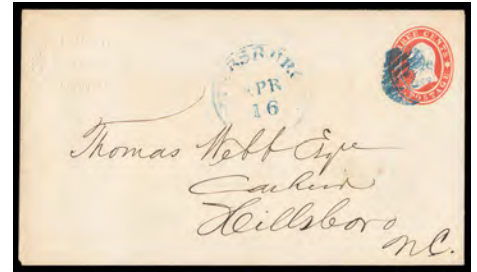 THREE CENTS
POSTAGE
APR
16
Thomas Webb Esqr
Cashier
Hillsboro
N.C.